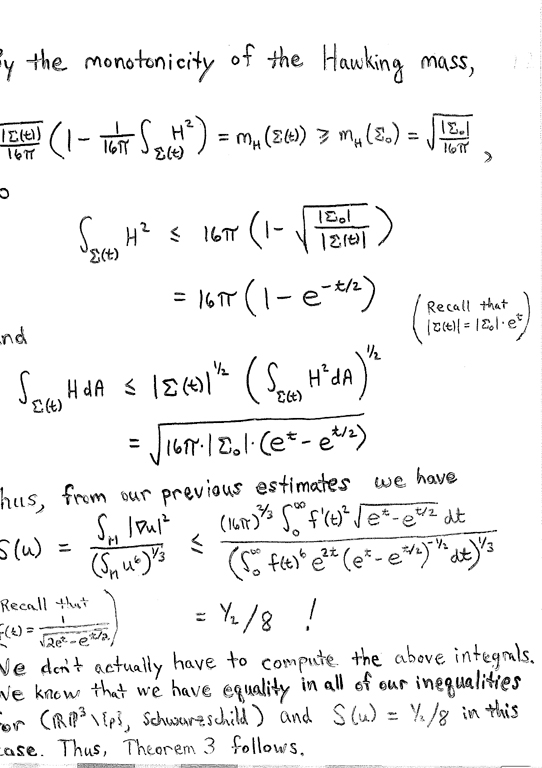 y the monotonicity of the Hawking mass,
|Σ(t)|/16π (1 - 1/16π ∫_Σ(t) H²) = m_H(Σ(t)) ≥ m_H(Σ₀) = √(|Σ₀|/16π) ,
o
∫_Σ(t) H² ≤ 16π (1 - √(|Σ₀|/|Σ(t)|))
= 16π (1 - e^(-t/2))
(Recall that
|Σ(t)| = |Σ₀|·e^t)
nd
∫_Σ(t) H dA ≤ |Σ(t)|^(1/2) (∫_Σ(t) H² dA)^(1/2)
= √(16π·|Σ₀|·(e^t - e^(t/2)))
hus, from our previous estimates we have
S(u) = ∫_M |∇u|² / (∫_M u⁶)^(1/3) ≤ (16π)^(2/3) ∫₀^∞ f'(t)² √(e^t - e^(t/2)) dt / (∫₀^∞ f(t)⁶ e^(2t) (e^t - e^(t/2))^(-1/2) dt)^(1/3)
Recall that
f(t) = 1/√(2e^t - e^(t/2))
= Y₂/8 !
We don't actually have to compute the above integrals.
We know that we have equality in all of our inequalities
for (ℝP³\{p}, Schwarzschild) and S(u) = Y₂/8 in this
case. Thus, Theorem 3 follows.